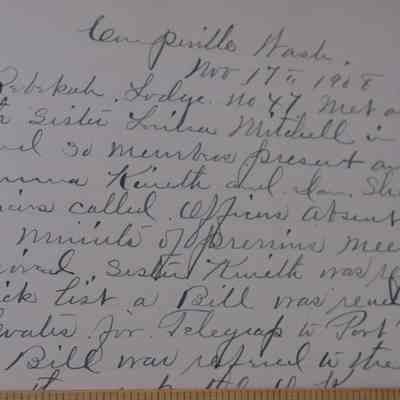 Coupeville Wash.
Nov 17th 1908
Rebekah. Lodge. no 47. Met a
Sister Louisa Mitchell in
and 30 members present an
Kineth and
called. Officers absent
Minuts of previous mee
Sister Kineth was re
sick List a Bill was
for. Telegrap to Port
Bill was refered to the